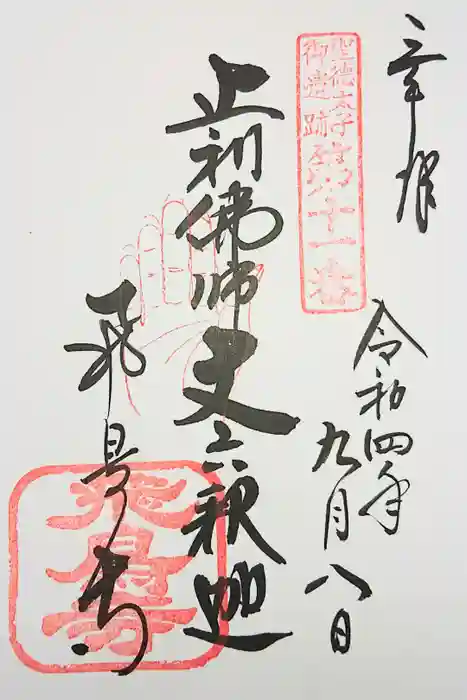 奉拝
令和四年
九月八日
聖徳太子
御遺跡
第十一番
止利佛師
丈六釈迦
飛鳥寺
飛鳥寺